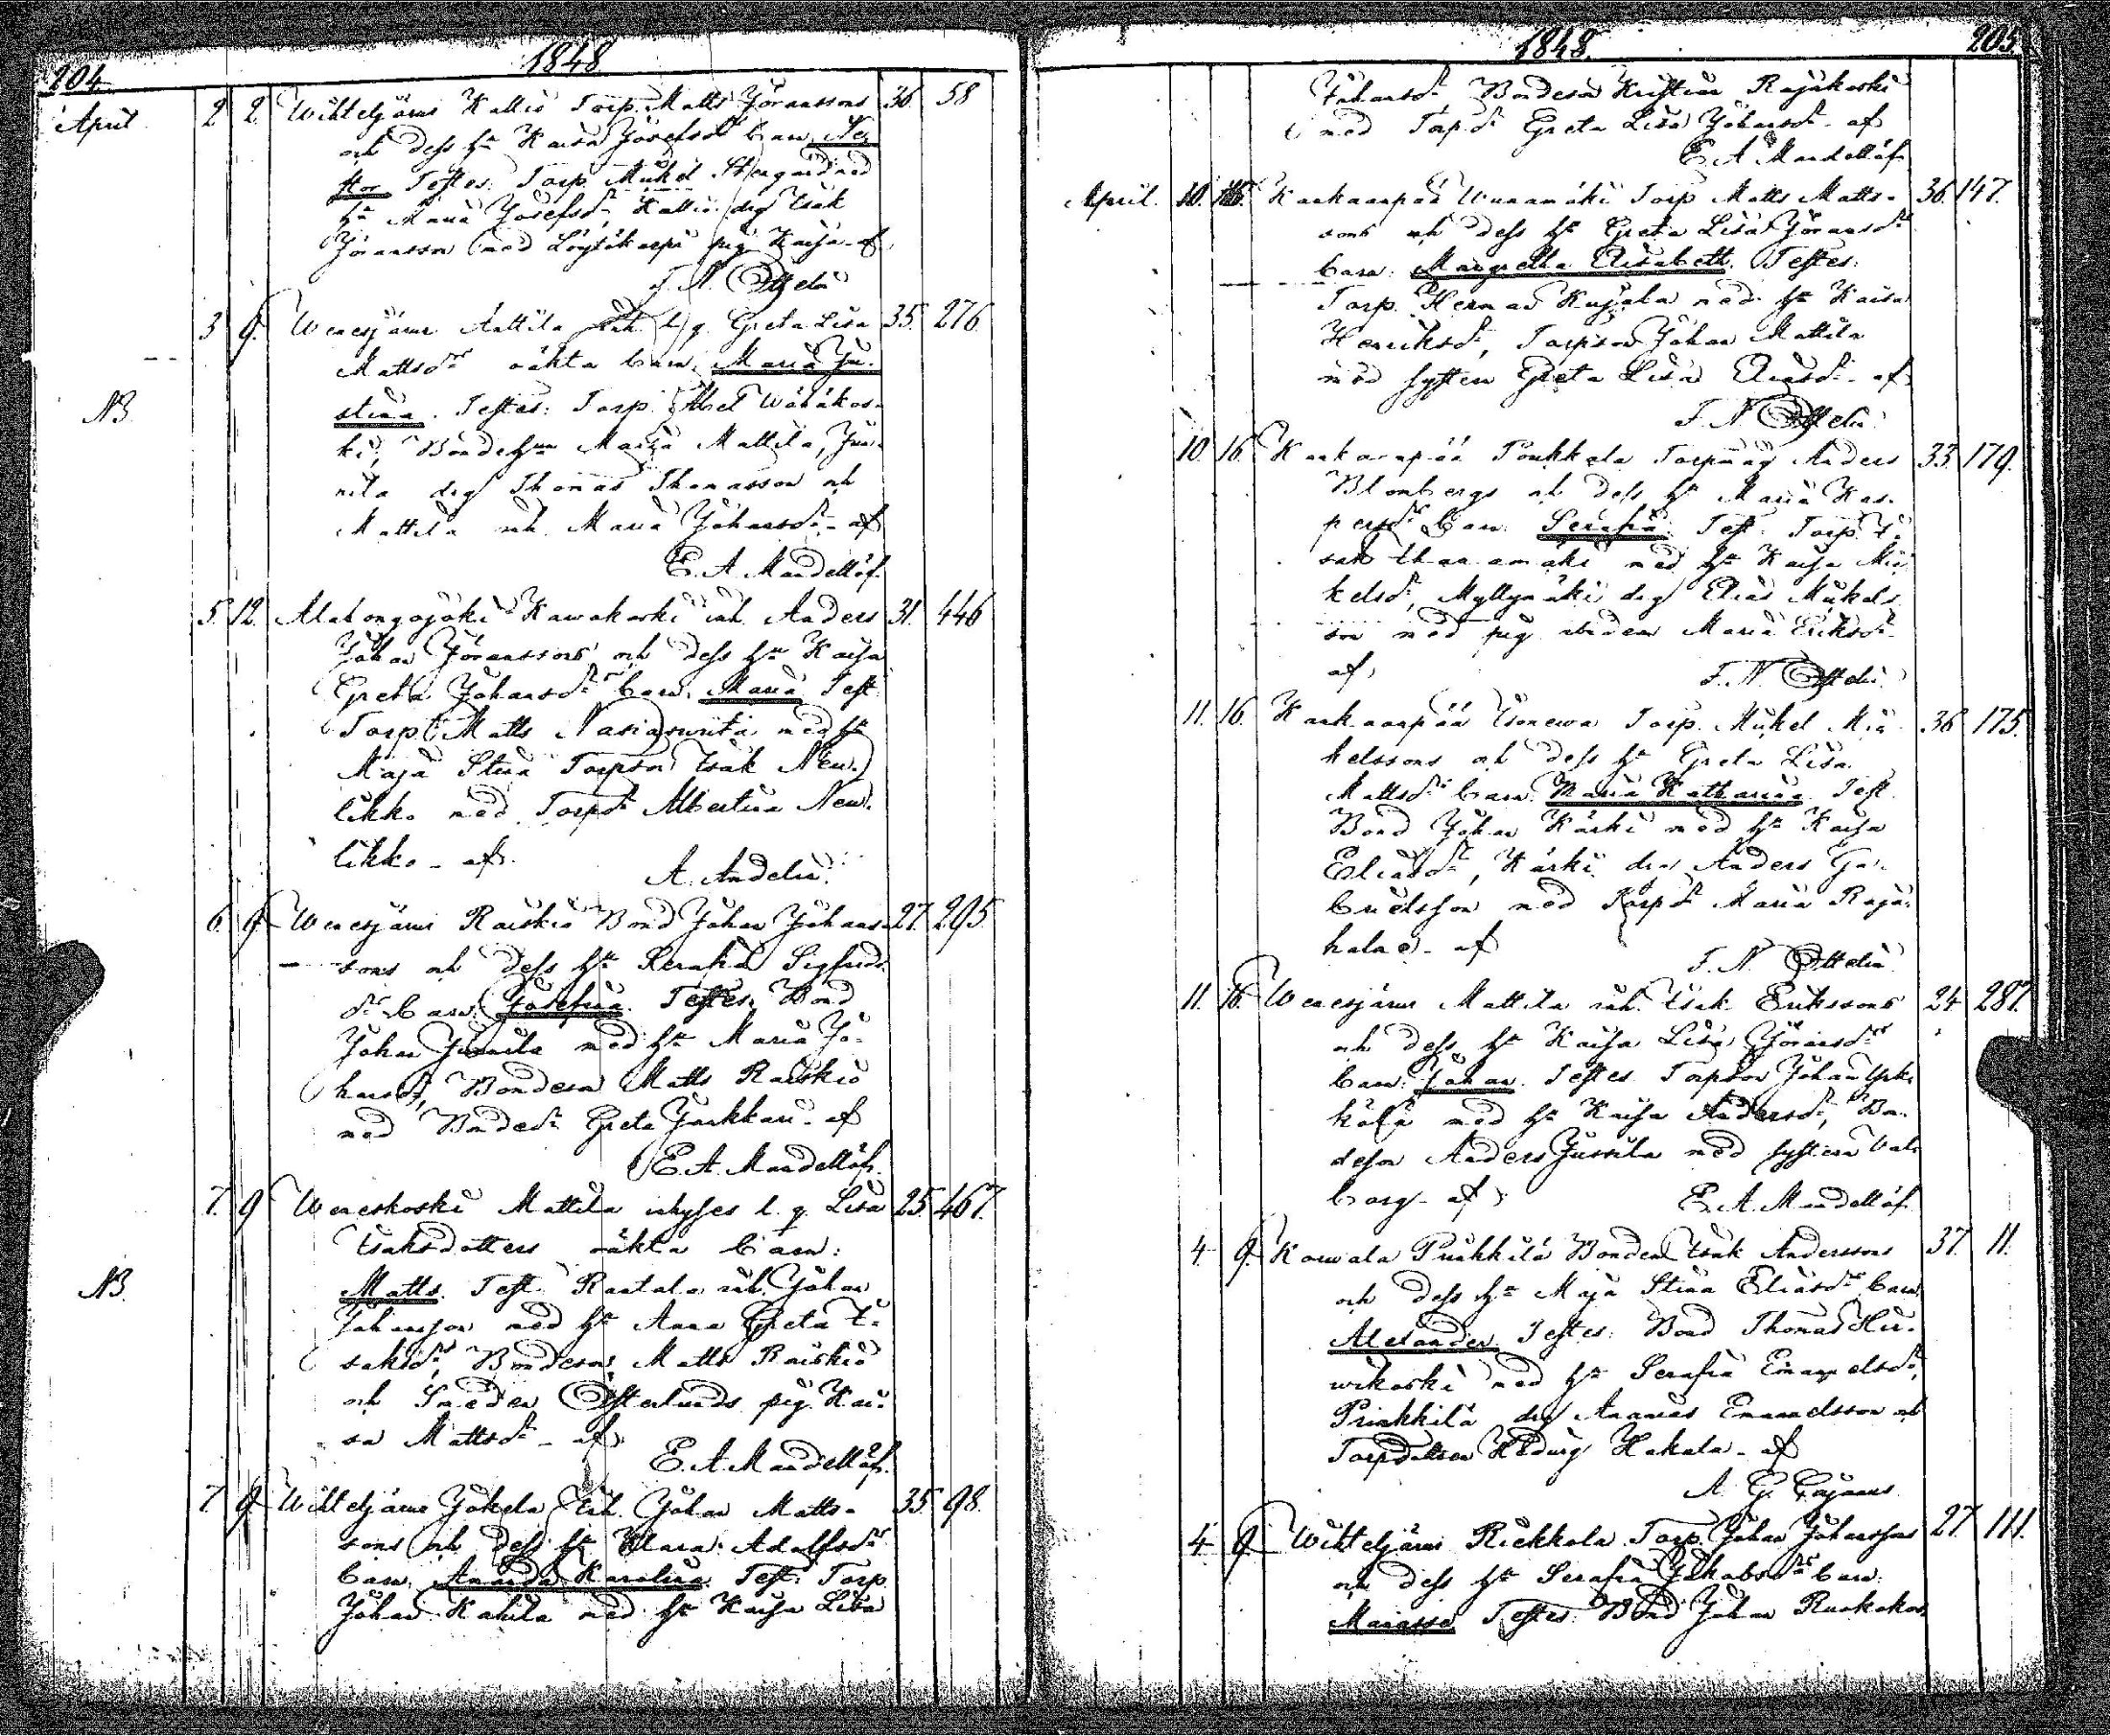 204.
1848
April 2 2. Wihteljärvi Kallio Torp. Matts Jöranssons 36 58
och dess h:u Kaisa Josefsd:r barn: Nes-
tor Testes: Torp. Mickel med
h:u Maria Josefsd:r, Kallio drg Isak
Jöransson med Löytökorpi pig. Kaisa - af
F. N. Ottelin
3 9. Wenesjärvi Anttila inh. Greta Lisa 35. 276
Mattsd:rs oäkta barn: Maria Ju-
NB. stina. Testes: Torp. Abel Wäräkos-
ki, Bondehun Maria Mattila, Jun-
nila drg Thomas Thomasson och
Mattila inh. Maria Johansd:r - af
E. A. Mandellöf.
5. 12. Alahongojoki Kawakoski inh. Anders 31. 446
Johan Jöranssons och dess h:u Kaisa
Greta Johansd:r barn: Maria Test:
Torp. Matts med h:u
Maja Stina Torpson Isak New-
likko med Torpd:r Albertina New-
likko - af.
A. Andelin.
6. 9. Wenesjärvi Raiskio Bond. Johan Johans- 27. 295.
sons och dess h:u Serafia Sigfrids-
d:r barn: Josefina. Testes: Bond
Johan Junnila med h:u Maria Jo-
hansd:r, Bondeson Matts Raiskio
med Bonded:r Greta Junkkari - af
E. A. Mandellöf.
7. 9 Weneskoski Mattila inhyses l. q. Lisa 25. 467.
Isaksdotters oäkta barn:
NB. Matts. Test: Rantala inh. Johan
Johansson med h:u Anna Greta I-
saksd:r, Bondeson Matts Raiskio
och Smeden Österlunds pig. Kai-
sa Mattsd:r - af
E. A. Mandellöf.
7. 9. Wihteljärvi Jokela Inh. Johan Matts- 35. 98.
sons och dess h:u Klara Adolfsd:r
barn: Amanda Karolina. Test: Torp
Johan Kahila med h:u Kaisa Lisa
1848. 205.
Johansd:r Bondeson Kristian Rajakoski
med Torpd:r Greta Lisa Johansd:r - af
E. A. Mandellöf.
April. 10. 16. Kankaanpää Torp. Matts Matts- 36. 147.
sons och dess h:u Greta Lisa Jöransd:r
barn: Margretha Elisabeth. Testes:
Torp. Herman Kujala med h:u Kaisa
Henriksd:r, Torpson Johan Mattila
med systern Greta Lisa Eliasd:r - af
F. N. Ottelin
10. 16. Kankaanpää Poukkala Torpmåg Anders 33. 179.
Blombergs och dess h:u Maria Kas-
persd:r barn: Serafia. Test: Torp. I-
sak med h:u Kaisa Mi-
kelsd:r, Myllymäki drg Elias Mickels-
son med pig. Maria Eriksd:r
af F. N. Ottelin.
11. 16. Kankaanpää Torp. Mickel Mi- 36 175.
kelssons och dess h:u Greta Lisa
Mattsd:r barn: Maria Katharina. Test:
Bond Johan Kärki med h:u Kaisa
Eliasd:r, Kärki drg Anders Ga-
brielsson med Torpd:r Maria Raja-
halme - af
F. N. Ottelin
11. 16. Wenesjärvi Mattila inh. Isak Erikssons 24 287.
och dess h:u Kaisa Lisa Jöransd:r
barn: Johan. Testes: Torpson Johan Yrk-
kölä med h:u Kaisa Andersd:r, Bon-
deson Anders Jussila med systern Wal-
borg - af
E. A. Mandellöf.
4. 9. Karwala Prinkkilä Bonden Isak Anderssons 37. 11.
och dess h:u Maja Stina Eliasd:rs barn
Alexander. Testes: Bond Thomas Hir-
wikoski med h:u Serafia Emanuelsd:r,
Prinkkilä drg Ananias Emanuelsson och
Torpdottren Hedvig Hakala - af
A. G. Cajanus.
4. 9. Wihteljärvi Riekkola Torp. Johan Johanssons 27 111.
och dess h:u Serafia Jakobsd:rs barn:
Manasse Testes: Bond Johan Ruokokos